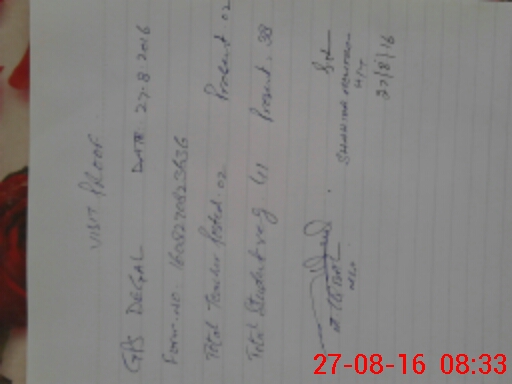 VISIT PROOF.
GPS DEGAL DATE 27.8.2016
Form no. 1608270823636
Total Teacher Posted. 02 Present 02
Total Student reg 41 Present. 38
H/T
27/8/16
27-08-16 08:33